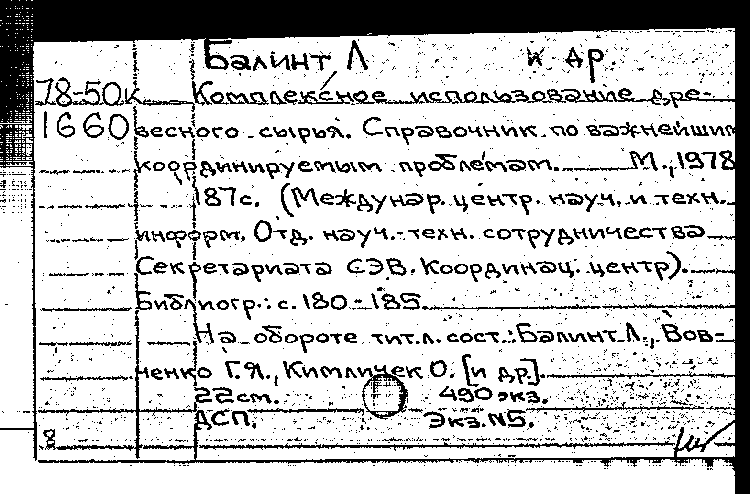 Балинт Л и др.
78-50к Комплексное использование дре-
1660 весного сырья. Справочник по важнейшим
координируемым проблемам. М., 1978
187с. (Междунар. центр. науч. и техн.
информ. Отд. науч.-техн. сотрудничества
Секретариата СЭВ. Координац. центр).
Библиогр.: с. 180-185.
На обороте тит.л. сост.: Балинт Л., Вов-
ченко Г.Я., Кимличек О. [и др].
22см. 490 экз.
ДСП. Экз.N5.
8